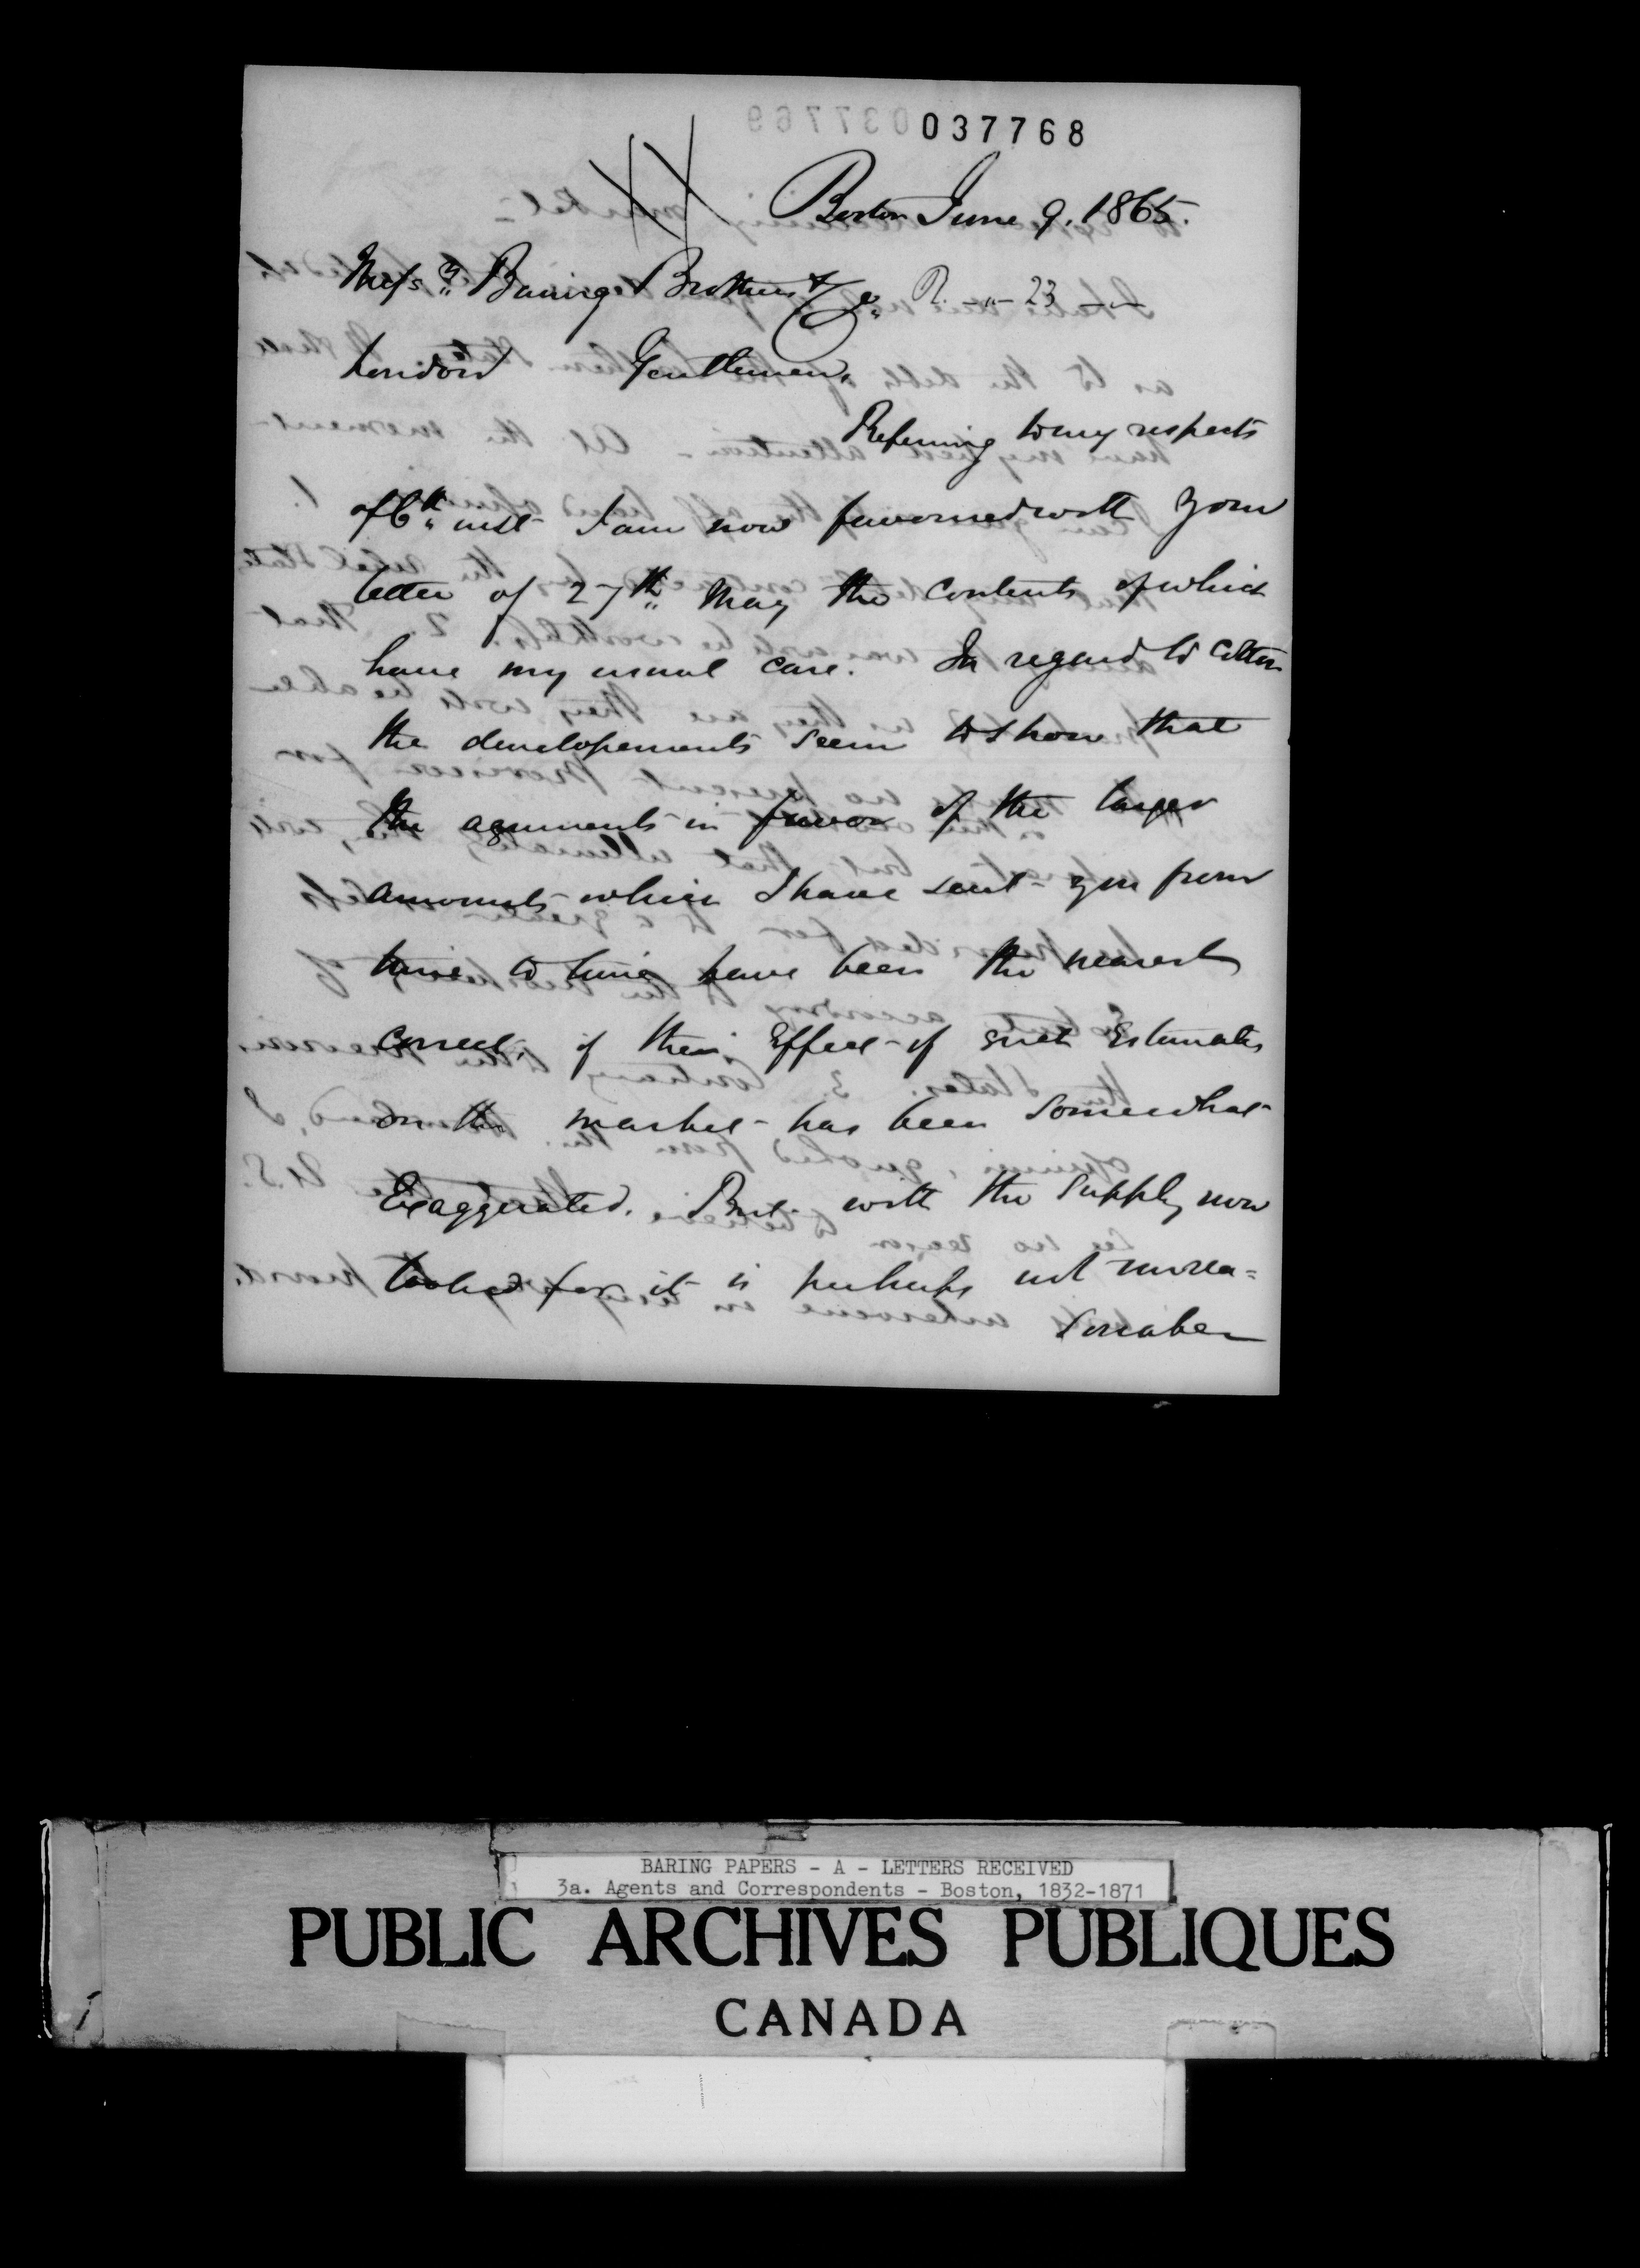 037768
Boston June 9. 1865.
Messrs Baring Brothers & Co. R. " 23
London Gentlemen,
Referring to my respects
of 6th inst I am now favoured with your
letter of 27th May the contents of which
have my usual care. In regard to Cotton
the developements seem to show that
the arguments in favor of the larger
amounts which I have sent you from
time to time have been the nearest
correct, if the Effect of such Estimates
on the market has been somewhat
Exaggerated. But with the supply now
looked for it is perhaps not unrea=
sonable
BARING PAPERS - A - LETTERS RECEIVED
3a. Agents and Correspondents - Boston, 1832-1871
PUBLIC ARCHIVES PUBLIQUES
CANADA